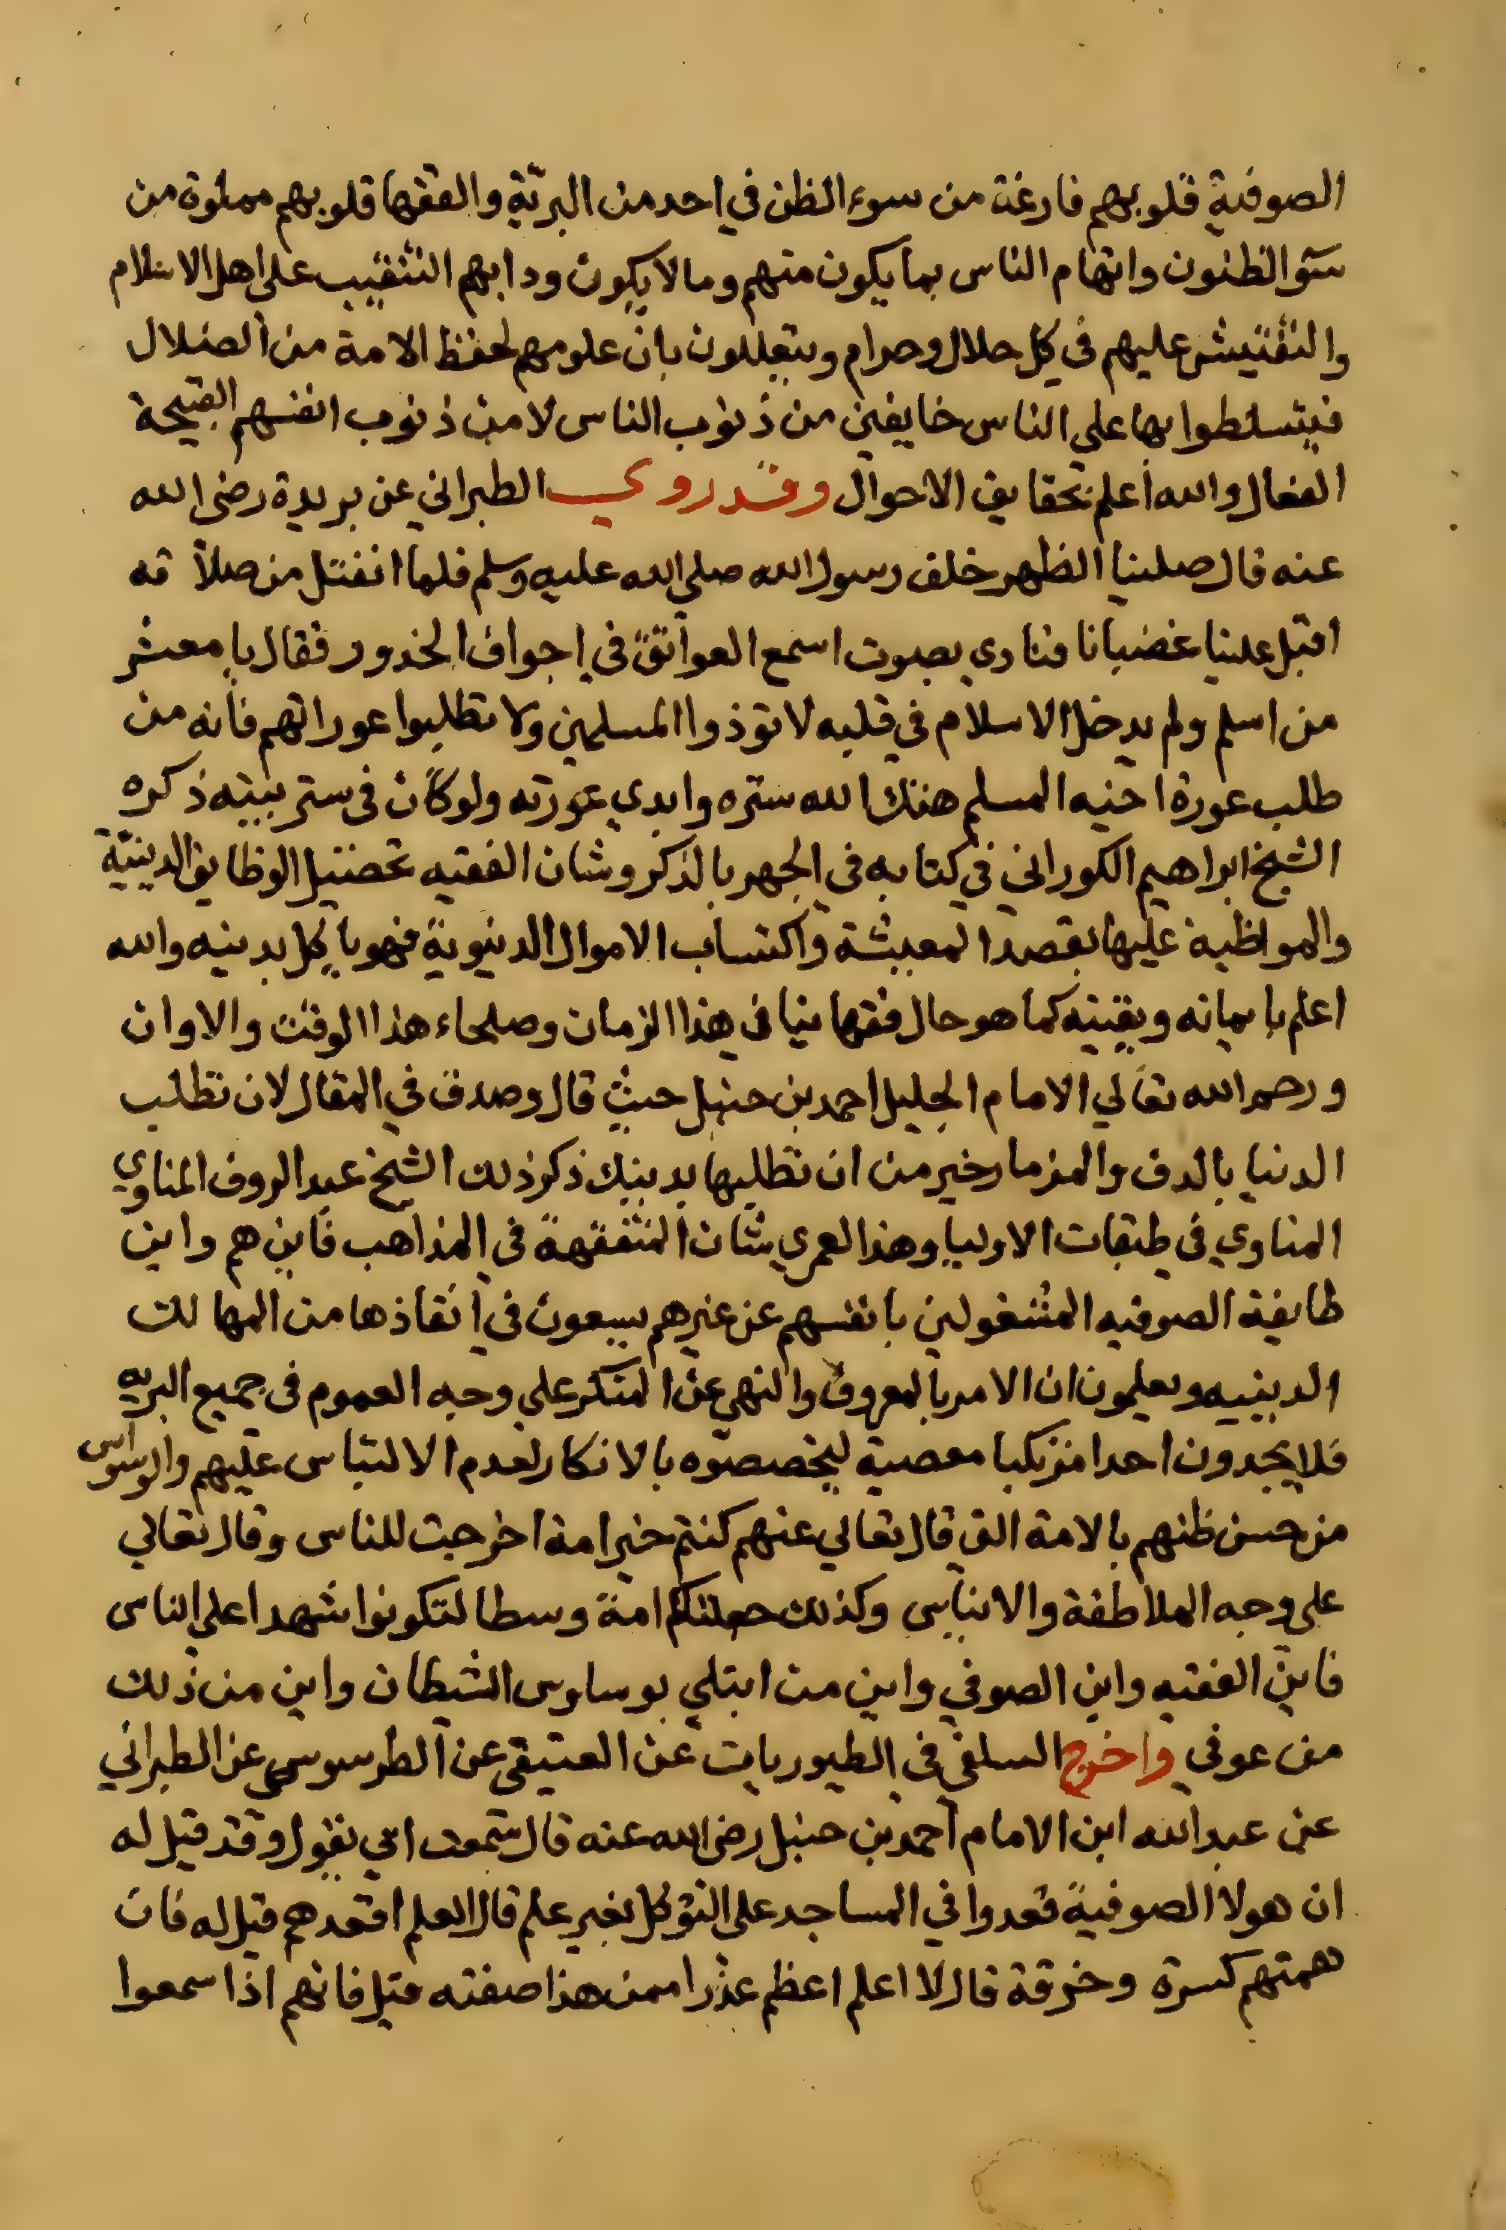 الصوفية قلوبهم فارغة من سوء الظن في احد من البرية والفقها قلوبهم مملوة من
سؤ الظنون واتهام الناس بما يكون منهم وما لا يكون ودابهم التنقيب على اهل الاسلام
والتفتيش عليهم في كل حلال وحرام ويتعللون بان علومهم لحفظ الامة من الضلال
فيتسلطوا بها على الناس خايفين من ذنوب الناس لا من ذنوب انفسهم القبيحة
الفعال والله اعلم بحقايق الاحوال وقد روي الطبراني عن بريدة رضي الله
عنه قال صلينا الظهر خلف رسول الله صلى الله عليه وسلم فلما انفتل من صلاته
اقبل علينا غضبانا فنادي بصوت اسمع العواتق في اجواف الخدور فقال يا معشر
من اسلم ولم يدخل الاسلام في قلبه لا توذوا المسلمين ولا تطلبوا عوراتهم فانه من
طلب عورة اخيه المسلم هتك الله ستره وابدي عورته ولو كان في ستر بيته ذكره
الشيخ ابراهيم الكوراني في كتابه في الجهر بالذكر وشان الفقيه تحصيل الوظايف الدينية
والمواظبة عليها بقصد المعيشة واكتساب الاموال الدنيوية فهو ياكل بدينه والله
اعلم بايمانه ويقينه كما هو حال فقهاينا في هذا الزمان وصلحاء هذا الوقت والاوان
ورحم الله تعالي الامام الجليل احمد بن حنبل حيث قال وصدق في المقال لان تطلب
الدنيا بالدف والمزمار خير من ان تطلبها بدينك ذكر ذلك الشيخ عبد الروف المناوي
المناوي في طبقات الاوليا وهذا لعمري شان المتفقهة في المذاهب فاين هم واين
طايفة الصوفيه المشغولين بانفسهم عن غيرهم يسعون في انقاذها من المهالك
الدينيه ويعلمون ان الامر بالمعروف والنهي عن المنكر على وجه العموم في جميع البريه
فلا يجدون احدا مرتكبا معصية ليخصصوه بالانكار لعدم الالتباس عليهم والوسواس
من حسن ظنهم بالامة التي قال تعالي عنهم كنتم خير امة اخرجت للناس وقال تعالي
على وجه الملاطفة والايناس وكذلك جعلنكم امة وسطا لتكونوا شهدا على الناس
فاين الفقيه واين الصوفي واين من ابتلي بوساوس الشيطان واين من ذلك
من عوفي واخرج السلفي في الطيوريات عن العتيقي عن الطرسوسي عن الطبراني
عن عبد الله ابن الامام احمد بن حنبل رضي الله عنه قال سمعت ابي يقول وقد قيل له
ان هولا الصوفية قعدوا في المساجد على التوكل بغير علم قال العلم اقعدهم قيل له فان
همتهم كسرة وخرقة قال لا اعلم اعظم عذرا ممن هذا صفته قيل فانهم اذا سمعوا